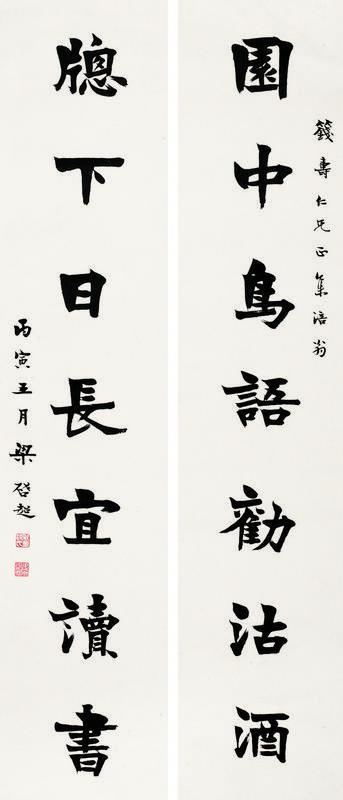 籛壽仁兄正集涪翁
園中鳥語勸沽酒
牎下日長宜讀書
丙寅五月梁啓超